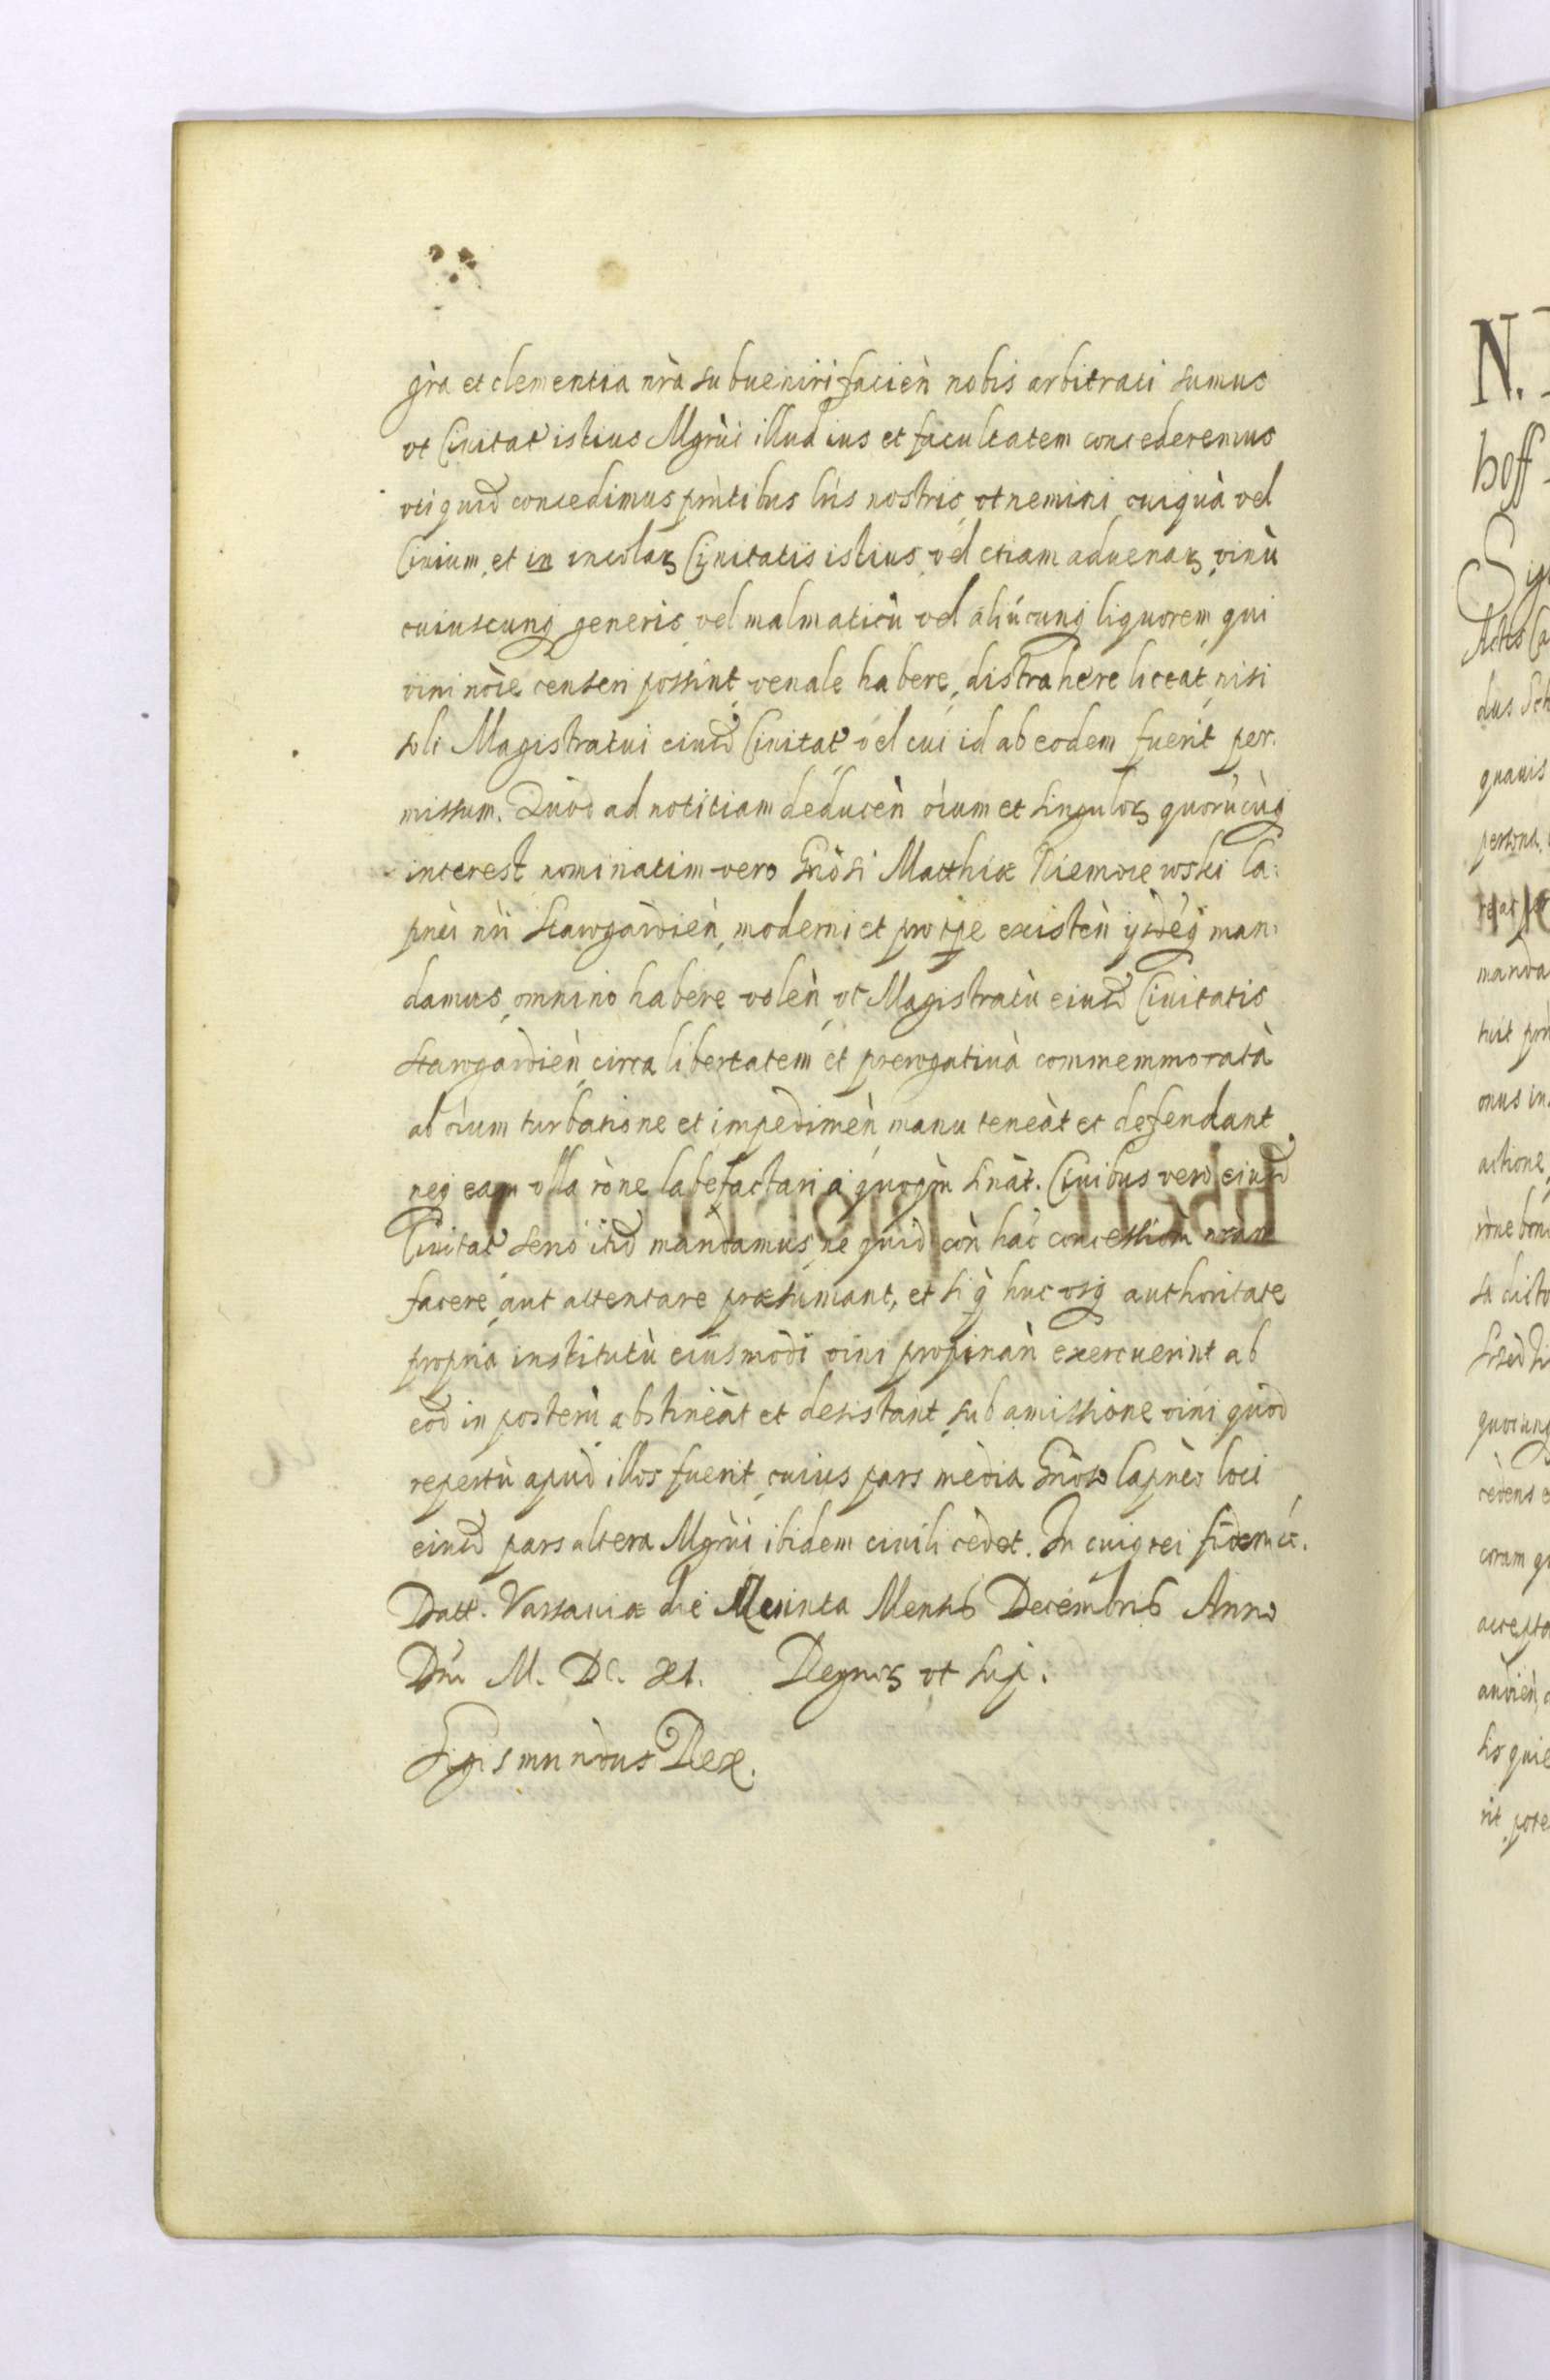 gra et clementia nrà subueniri facień nobis arbitrati sumus
vt Ciuitat istius Mgrùi illud ius et facultatem concederemus
vti quid concedimus pńtibus lris nostris, vt nemini cuiquà vel
Ciuium, et in incolaʒ Ciuitatis istius vel etiam aduenaʒ, vinù
cuiuscunq generis vel malmaticù vel aliúcunq liquorem qui
vini nòie censeri possint venale habere, distrahere liceat, nisi
soli Magistratui eiusd Ciuitat vel cui id ab eodem fuerit per.
missum. Quod ad notitiam deducèn òium et singuloʒ quorúcùq
interest nominatim vero Gnòsi Matthiæ Niemoiewski Ca:
pnèi nri Stawgardień moderni et pro tpe existèn ijsdéq man:
damus, omnino habere volèn, vt Magistratù eiusd Ciuitatis
Stawgardień circa libertatem et prerogatiuà commemmoratà
ab òium turbatione et impedimèn manu teneàt et defendant
neq eam vlla ròne labefactari à quoqm sinàt. Ciuibus vero eiusd
Ciuitat serio itid mandamus, ne quid còn hac concessiom nram
facere aut attentare præsumant, et si q huc vsq authoritate
propria institutù eiusmodi vini propinàn exercuerint ab
eod in posterù abstineàt et desistant, sub amissione vini quod
repertù apud illos fuerit, cuius pars media Gnòso Capnèo loci
eiusd pars altera Mgrùi ibidem ciuili cedet. In cuiq rei fidem &c.
Datt. Varsauiæ die Mensis Decembris Anno
Dni M. DC. XI. Regnoʒ vt sup.
Sigismundus Rex.
N.
hoff
Sigi
Actis Ca
dus Sch
quauis
persona
manda
tuit
onus in
actione
ròne bon
quocunq
cedens e
coram q
accepta
audièn
sis quie
rit pote